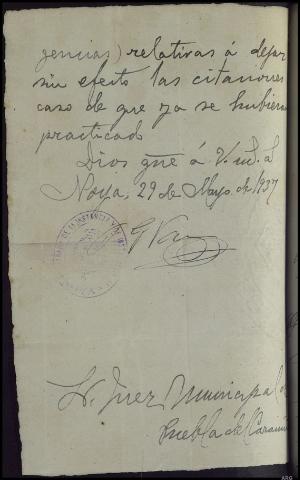 gencias) relativas á dejar
sin efecto las citaciones
caso de que ya se hubieran
practicado
Dios gue á V. m.s a.s
Noya, 29 de Mayo de 1937
Sr. Juez Municipal de
Puebla del Caramiñal